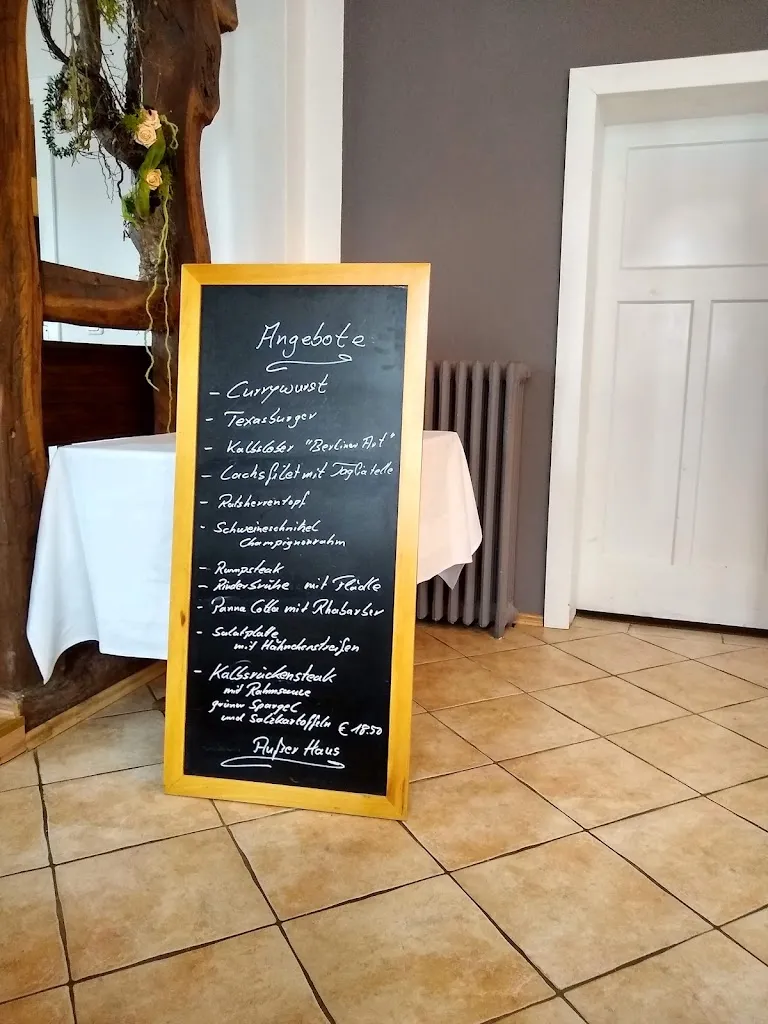 Angebote
- Currywurst
- Texasburger
- Kalbsleber "Berliner Art"
- Lachsfilet mit Tagliatelle
- Ratsherrentopf
- Schweineschnitzel
Champignonrahm
- Rumpsteak
- Rinderbrühe mit Flädle
- Panna Cotta mit Rhabarber
- Salatplatte
mit Hähnchenstreifen
- Kalbsrückensteak
mit Rahmsauce
grüner Spargel
und Salzkartoffeln € 18.50
Außer Haus